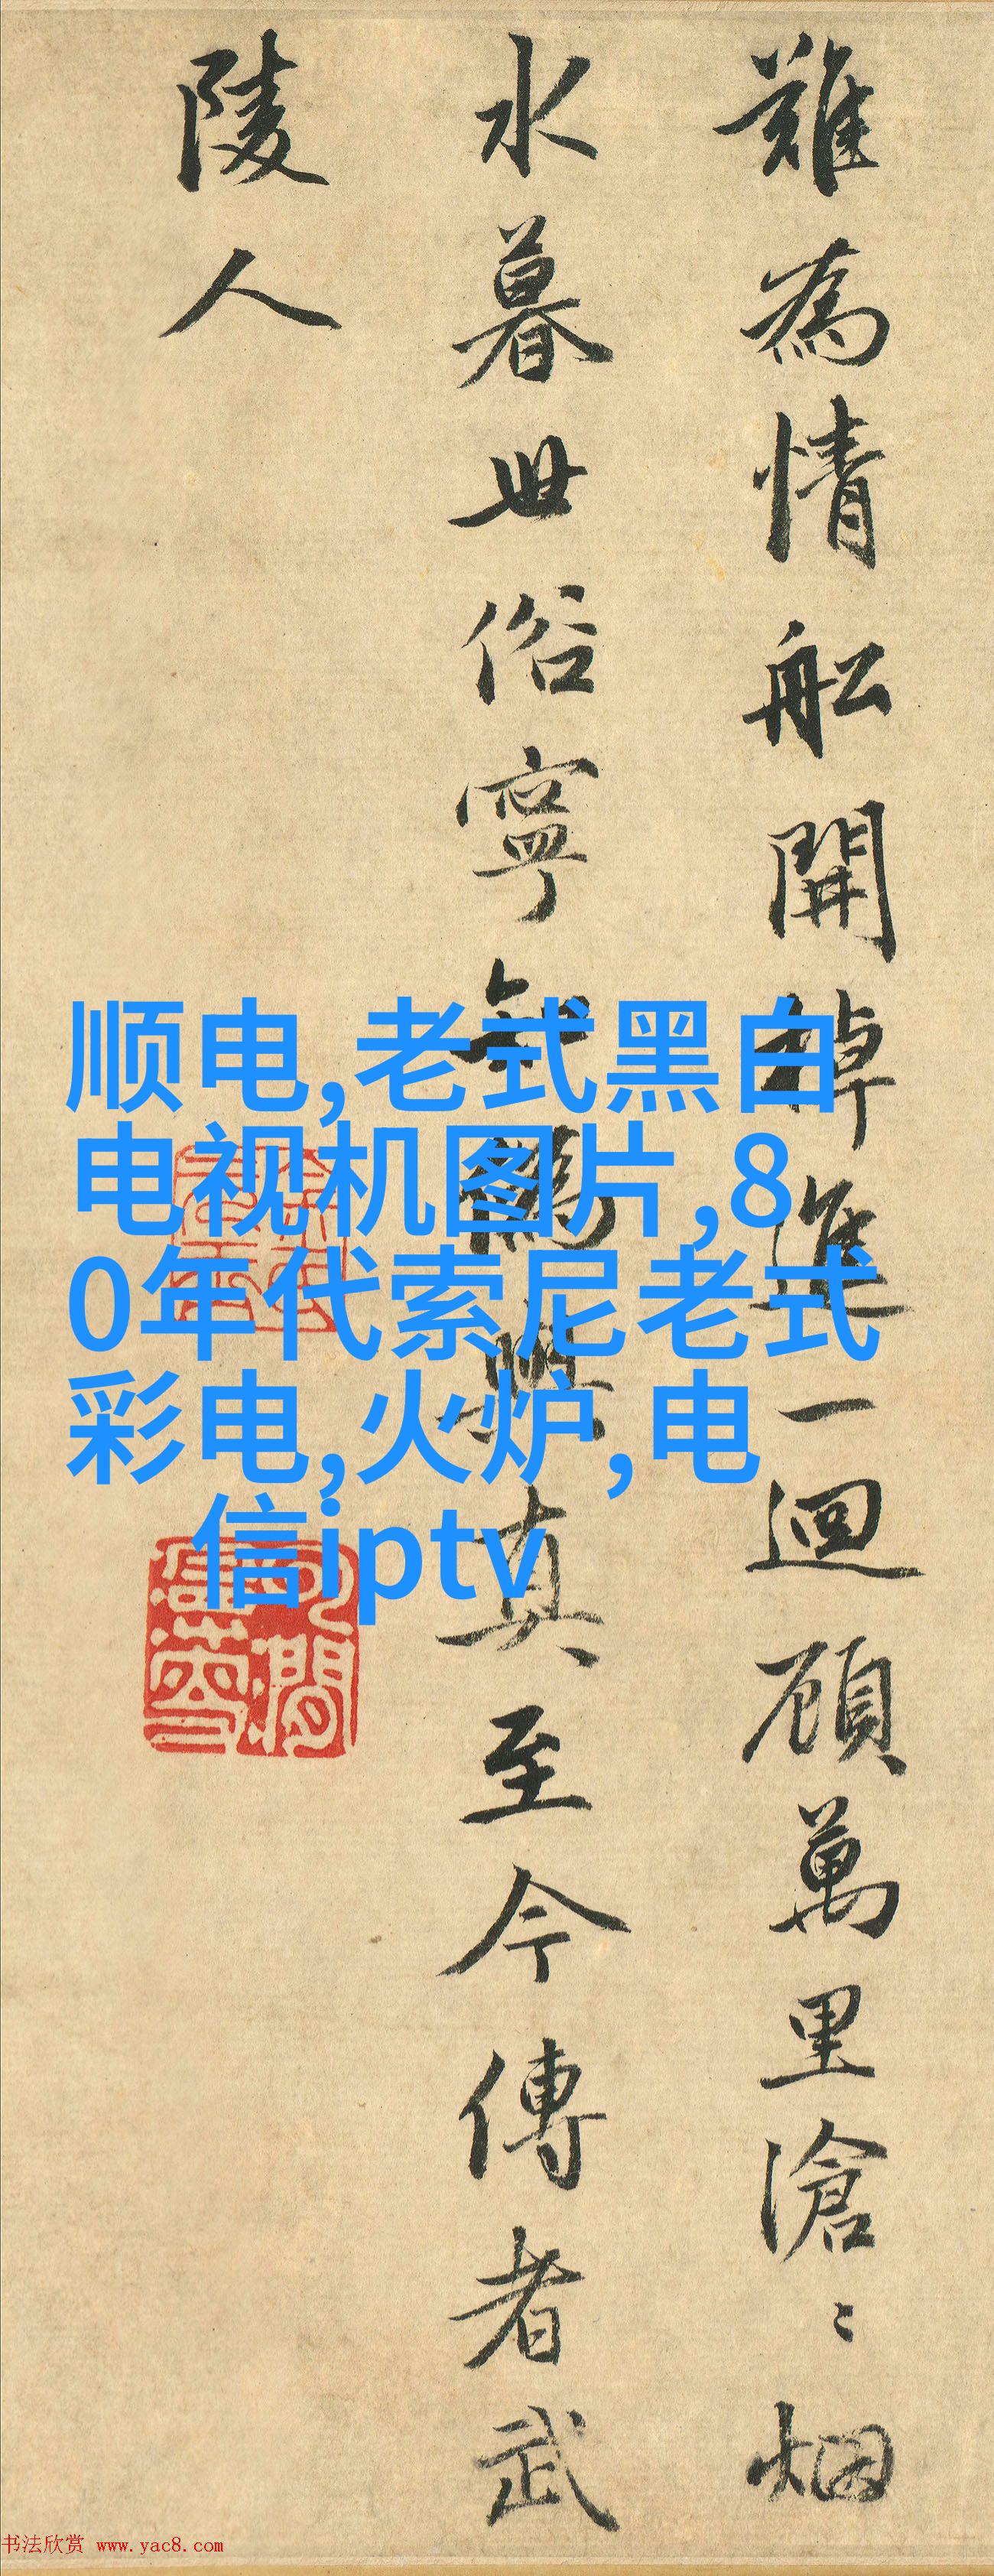 難為情舩開棹進一迴顧萬里滄〻烟
水暮世俗寧知偽與真至今傳者武
陵人
顺电,老式黑白
电视机图片,8
0年代索尼老式
彩电,火炉,电
信iptv
书法欣赏 www.yac8.com